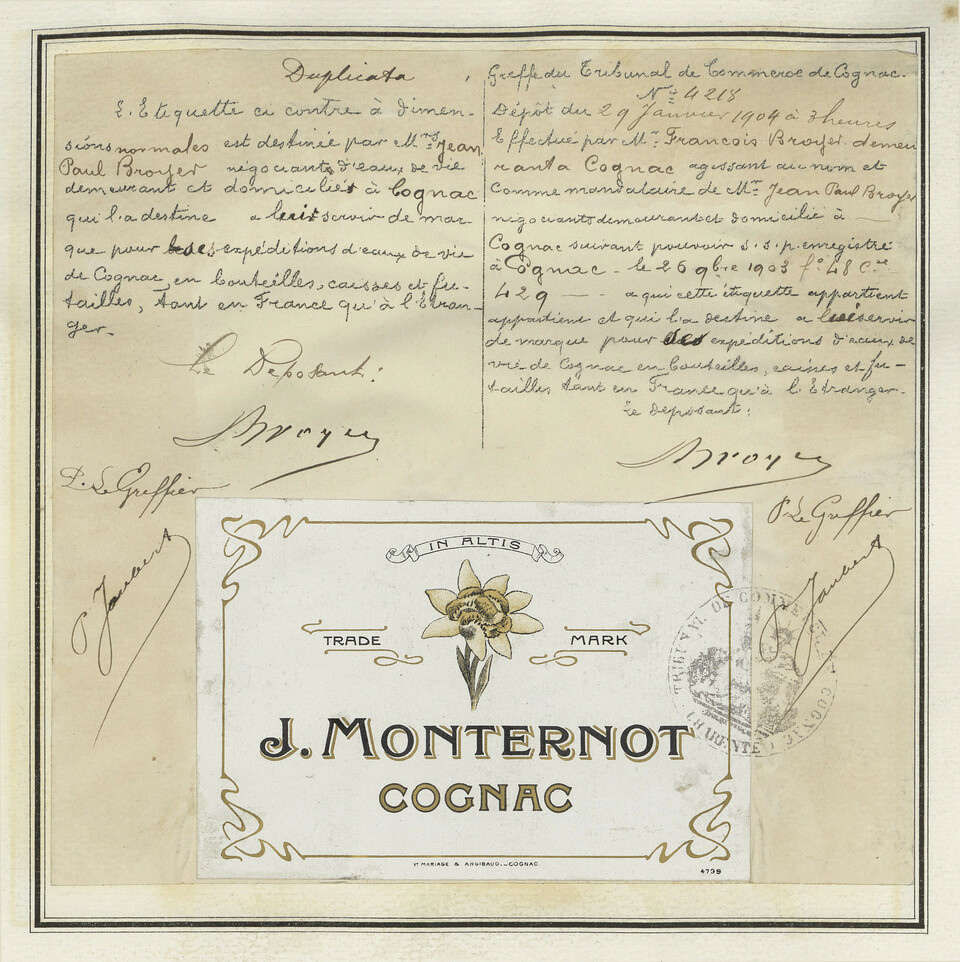 Duplicata
L'Etiquette ci contre à dimen-
sions normales est destinée par Mrs Jean
Paul Broyer négociants d'eaux de vie
demeurant et domiciliés à Cognac
qui l'a destine a servir de mar-
que pour ses expéditions d'eaux de vie
de Cognac, en bouteilles, caisses et fu-
tailles, tant en France qu'à l'Etran-
ger.
Le Déposant:
Broyer
P. Le Greffier
P Jaubert
Greffe du Tribunal de Commerce de Cognac.
No 4218
Dépôt du 29 Janvier 1904 à 3 heures
Effectué par Mr Francois Broyer demeu
rant a Cognac agissant au nom et
Comme mandataire de Mr Jean Paul Broyer
négociants demeurant et domicilié à —
Cognac suivant pouvoir s.s.p. enregistré
à Cognac - le 26 9bre 1903 fo 48 Cse
429 — a qui cette étiquette appartient
appartient et qui l'a destine a lui servir
de marque pour des expéditions d'eaux de
vie de Cognac en bouteilles, caisses et fu-
tailles tant en France qu'à l'Etranger.
Le déposant:
Broyer
P. Le Greffier
Jaubert
IN ALTIS
TRADE MARK
J. MONTERNOT
COGNAC
Vt MARIAGE & ANGIBAUD._COGNAC.
4799
TRIBUNAL DE COMMERCE DE COGNAC
CHARENTE